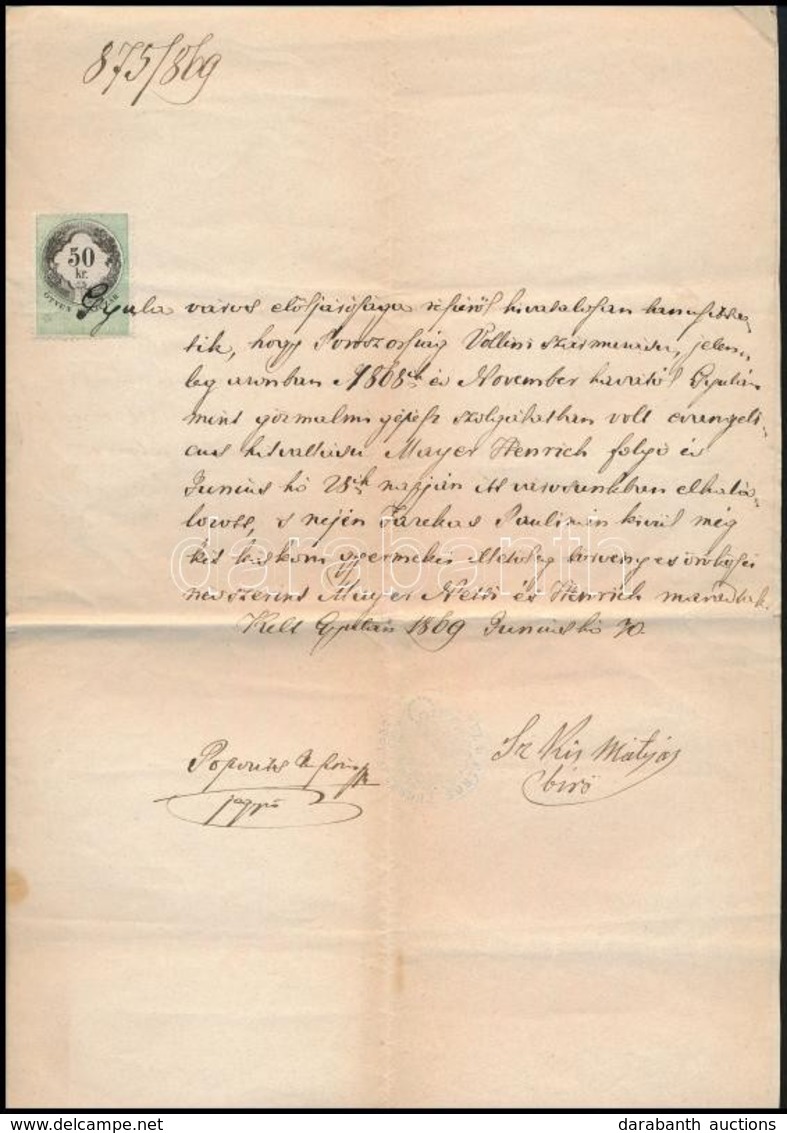 875/869
50
kr.
ÖTVEN
Gyula város előljárósága részéről hivatalosan
tik, hogy Poroszország származásu, jelen-
leg azonban 1868ik év November havától Gyulán
mint gőzmalmi gépész szolgálatban volt evangeli-
cus hitvallásu Mayer Henrich folyó év
Junius hó 28ik napján itt városunkban elhalá-
lozott, s nején Farekas Paulinán kivül még
két kiskorú gyermekei illetőleg törvényes örökösei
névszerint Mayer Netti és Henrich maradtak.
Kelt Gyulán 1869 Junius hó 30.
Sz Kis Mátyás
biró
jegyző
darabanth
www.delcampe.net
darabanth auctions